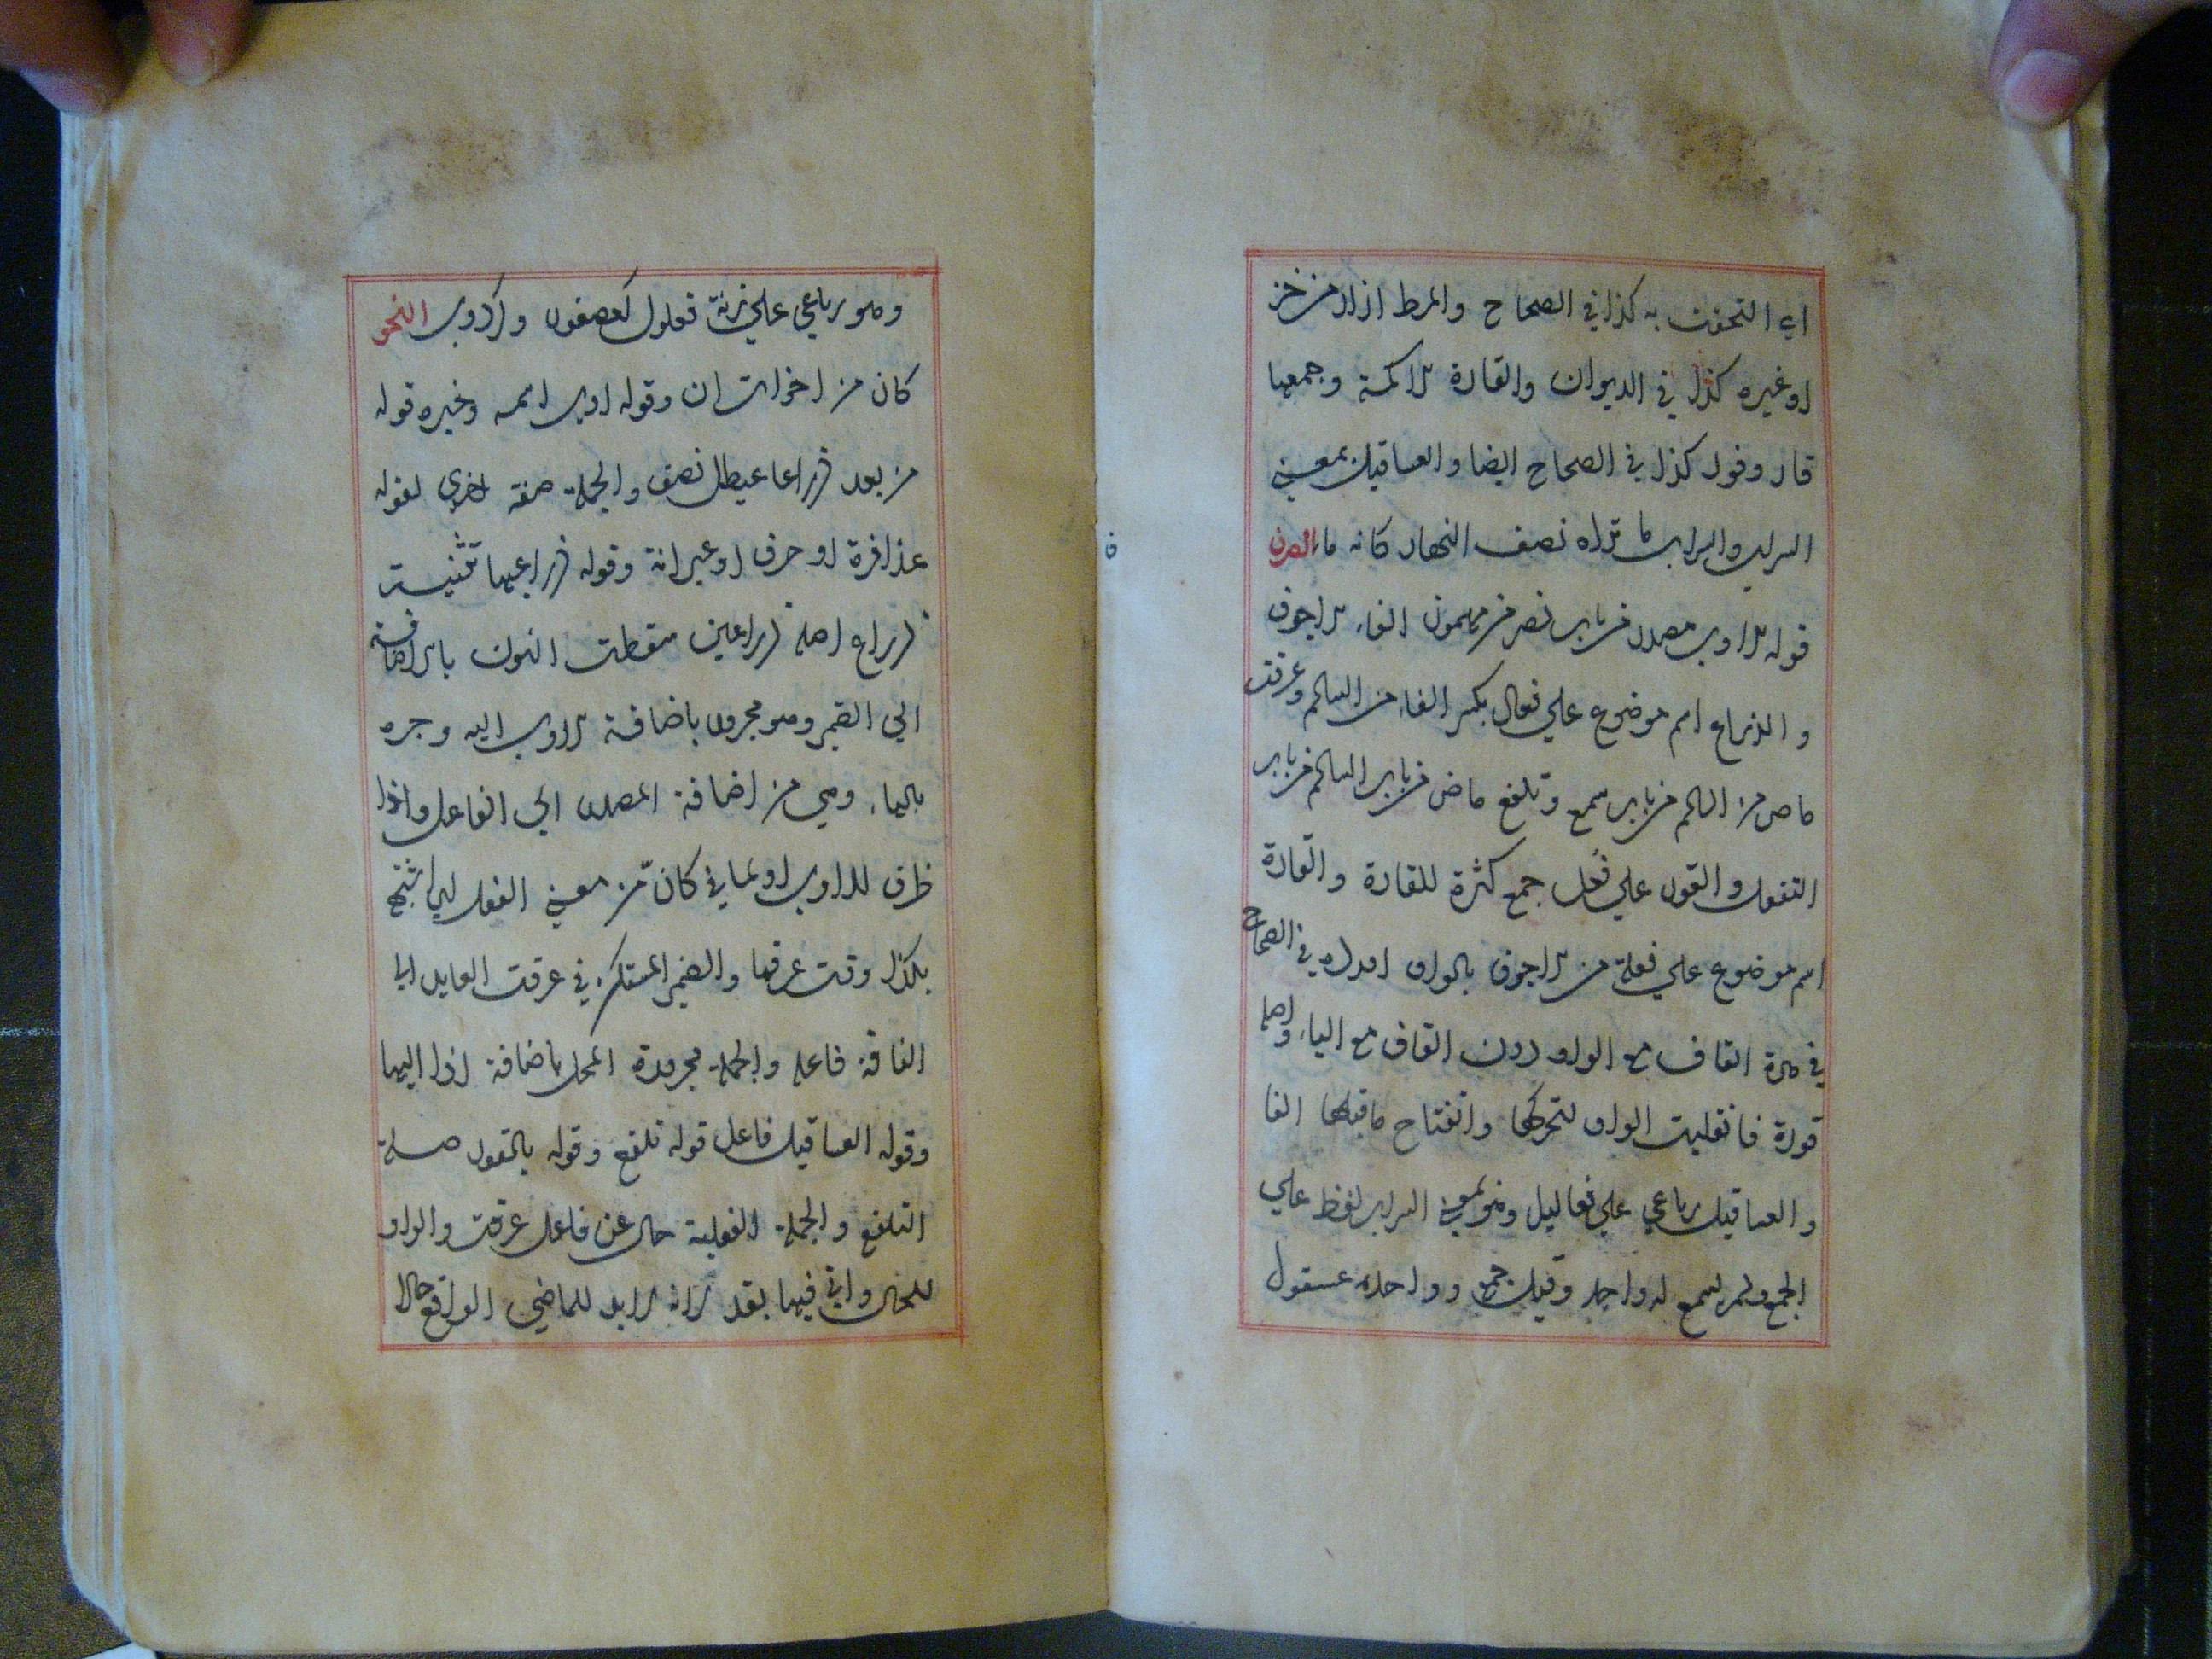 اي التحفت به كذا في الصحاح والمرط ازار من خز
او غيره كذا في الديوان والقارة الاكمة وجمعها
قار وقور كذا في الصحاح ايضا والعساقيل بمعني
السراب والسراب ما تراه نصف النهار كانه ماء الصرف
قوله الاوب مصدر من باب نصر من مهموز الفاء الاجوف
والذراع اسم موضوع علي فعال بكسر الفاء من السالم وعرقت
ماض من السالم من باب سمع وتلفع ماض من باب السالم من باب
التفعل والقور علي فعل جمع كثرة للقارة والقارة
اسم موضوع علي فعلة من الاجوف بالواو اورده في الصحاح
في مرة القاف مع الواو دون القاف مع الياء واصله
قورة فانقلبت الواو لتحركها وانفتاح ما قبلها الفا
والعساقيل رباعي علي فعاليل وهو بمعني السراب لفظ علي
الجمع ولم يسمع له واحد وقيل جمع وواحده عسقول
وهو رباعي علي زنة فعلول كعصفور وكردوس النحو
كان من اخوات ان وقوله اوب اسمه وخبره قوله
من بعد ذراعا عيطل نصف والجملة صفة اخري لقوله
عذافرة او حرف او عيرانة وقوله ذراعيها تثنيت
ذراع اصله ذراعين سقطت النون بالاضافة
الي الضمير وهو مجرور باضافة الاوب اليه وجره
بالياء وهي من اضافة المصدر الي الفاعل واذا
ظرف للاوب او لما في كان من معني الفعل اي اشبه
بكذا وقت عرقها والضمير المستكن في عرقت العايد الي
الناقة فاعله والجملة مجرورة المحل باضافة اذا اليها
وقوله العساقيل فاعل قوله تلفع وقوله بالقور صلة
التلفع والجملة الفعلية حال عن فاعل عرقت والواو
للحال واتي فيها بقد لانه لابد للماضي الواقع حالا